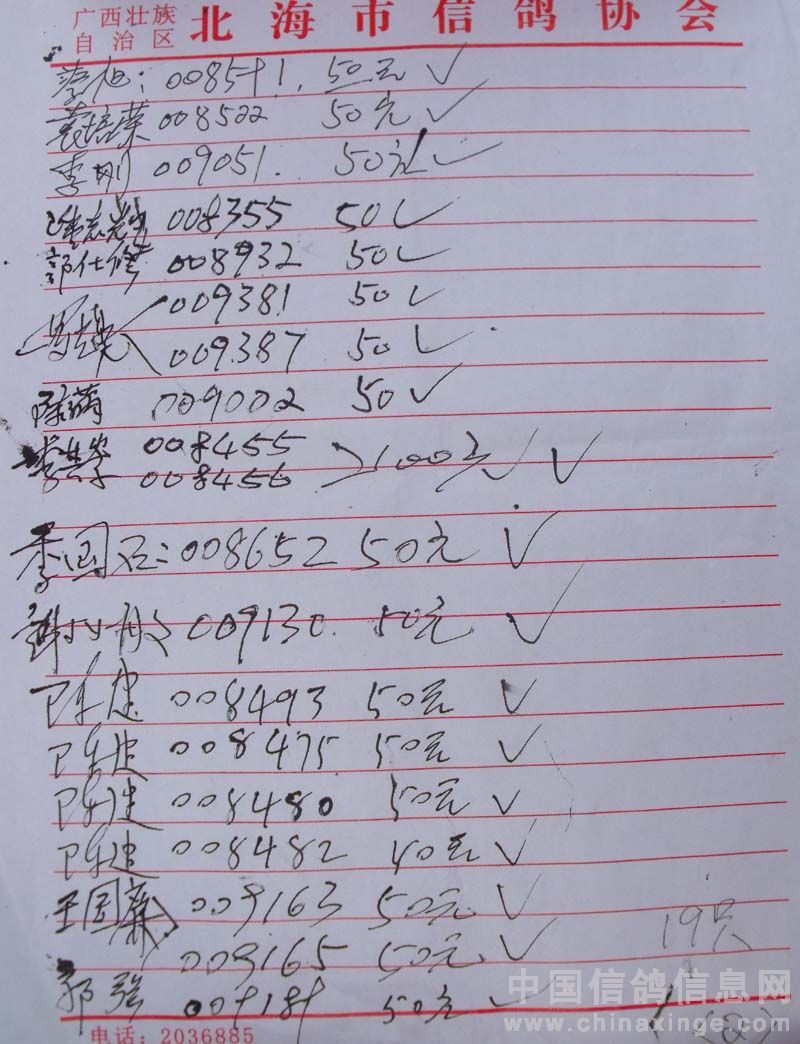 广西壮族
自治区
北海市信鸽协会
李旭: 008591. 50元 ✓
袁培荣 008522 50元 ✓
李刚 009051. 50元 ✓
008355 50 ✓
郭仕修 008932 50 ✓
009381 50 ✓
009387 50 ✓
陈萌 009002 50 ✓
008455
008456 100元 ✓ ✓
季国石: 008652 50元 ✓
009130. 50元 ✓
陈建 008493 50元 ✓
陈建 008475 50元 ✓
陈建 008480 50元 ✓
陈建 008482 40元 ✓
王国廉 009163 50元 ✓
009165 50元 ✓
19只
郭强 009189 50元 ✓
电话: 2036885
中国信鸽信息网
www.chinaxinge.com